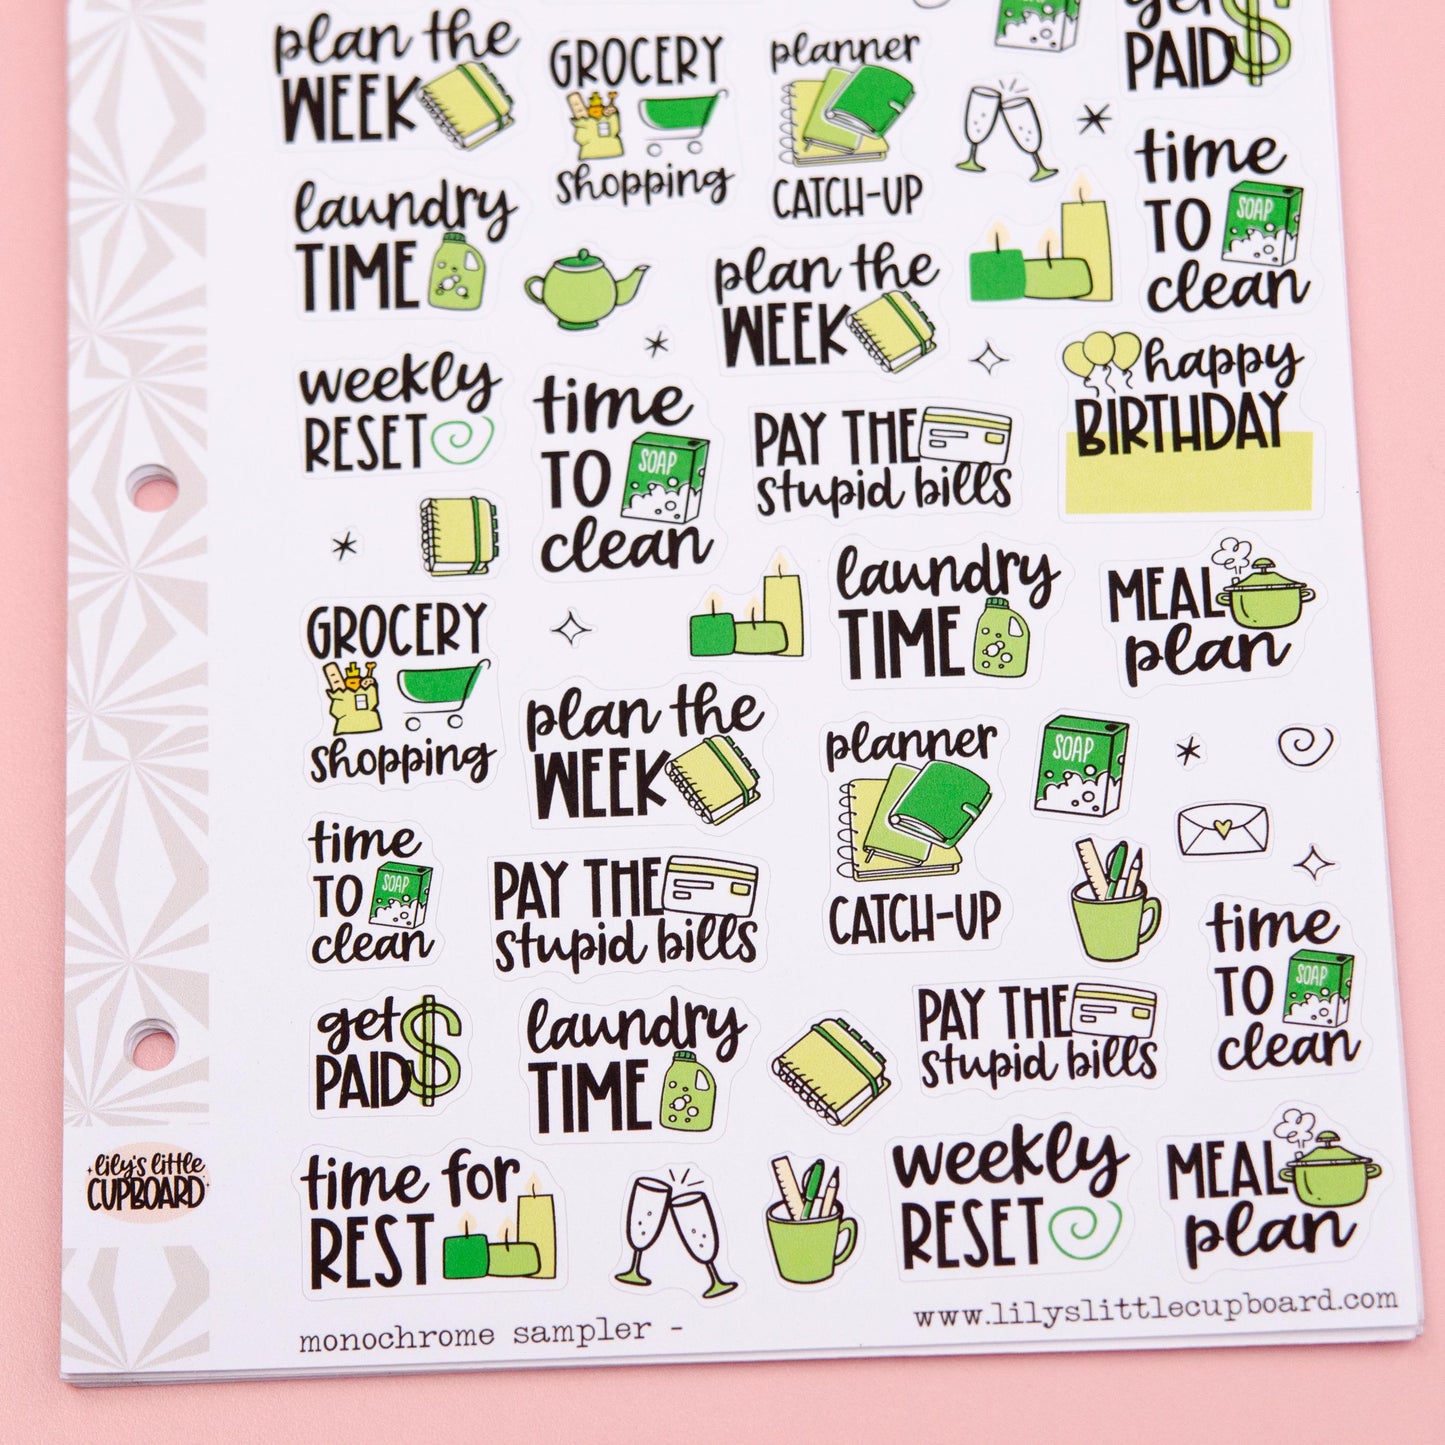 plan the
WEEK
GROCERY
shopping
planner
CATCH-UP
get
PAID
laundry
TIME
plan the
WEEK
time
TO
SOAP
clean
weekly
RESET
time
TO
SOAP
clean
PAY THE
stupid bills
happy
BIRTHDAY
GROCERY
shopping
laundry
TIME
MEAL
plan
plan the
WEEK
planner
CATCH-UP
SOAP
time
TO
SOAP
clean
PAY THE
stupid bills
time
TO
SOAP
clean
get
PAID
laundry
TIME
PAY THE
stupid bills
lily's little
CUPBOARD
time for
REST
weekly
RESET
MEAL
plan
monochrome sampler -
www.lilyslittlecupboard.com